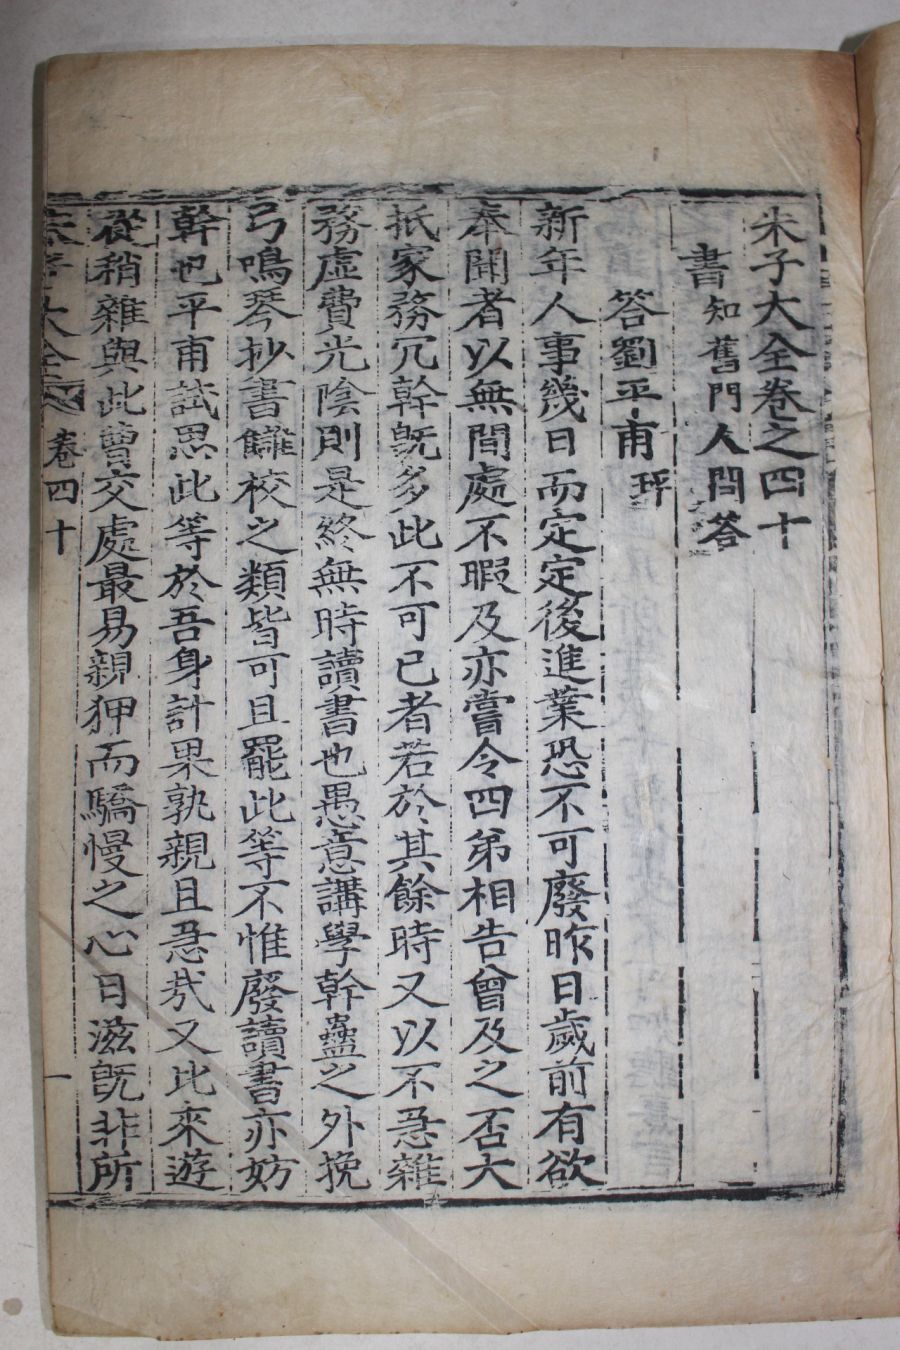 朱子大全卷之四十
書知舊門人問答
答劉平甫玶
新年人事幾日而定定後進業恐不可廢昨日歲前有欲
奉聞者以無間處不暇及亦嘗令四弟相告曾及之否大
抵家務冗幹旣多此不可已者若於其餘時又以不急雜
務虛費光陰則是終無時讀書也愚意講學幹蠱之外挽
弓鳴琴抄書讎校之類皆可且罷此等不惟廢讀書亦妨
幹也平甫試思此等於吾身計果孰親且急哉又比來遊
從稍雜與此曹交處最易親狎而驕慢之心日滋旣非所
朱子大全 卷四十 一